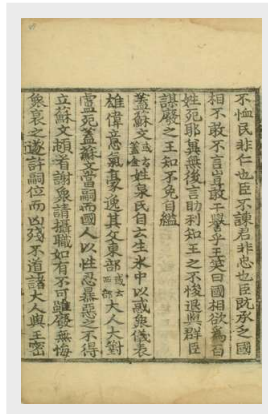 不恤民非仁也臣不諫君非忠也臣既承乏國
相不敢不言豈敢干譽乎王笑曰國相欲爲百
姓死耶冀無後言助利知王之不悛退與群臣
謀廢之王知不免自縊
蓋蘇文或云蓋金姓泉氏自云生水中以惑衆儀表
雄偉意氣豪逸其父東部或云西部大人大對
盧死蓋蘇文當嗣而國人以性忍暴惡之不得
立蘇文頓首謝衆請攝職如有不可雖廢無悔
衆哀之遂許嗣位而凶殘不道諸大人與王密